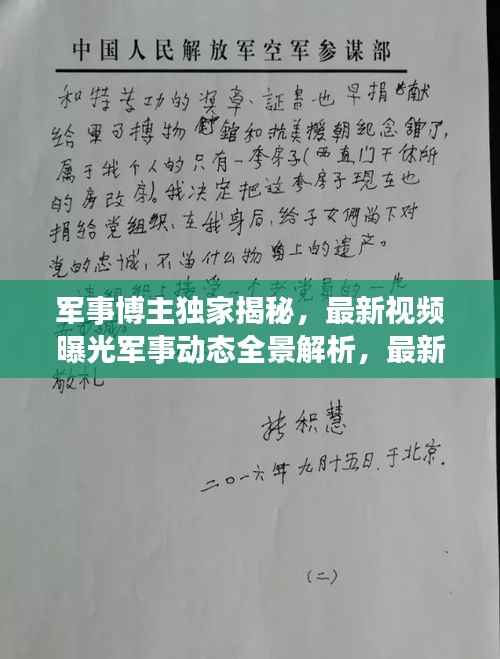 中国人民解放军空军参谋部
和特等功的奖章、証書也早捐献
给军事博物館和抗美援朝纪念館了,
属于我个人的只有一套房子(西直门干休所
的房改房)。我决定把这套房子现在也
捐给党组织,在我身后,给子女們畄下对
党的忠诚,不畄什么物貭上的遗产。
军事博主独家揭秘，最新视频
曝光军事动态全景解析，最新
敬礼
张积慧
二〇一六年九月十五日于北京.
(二)